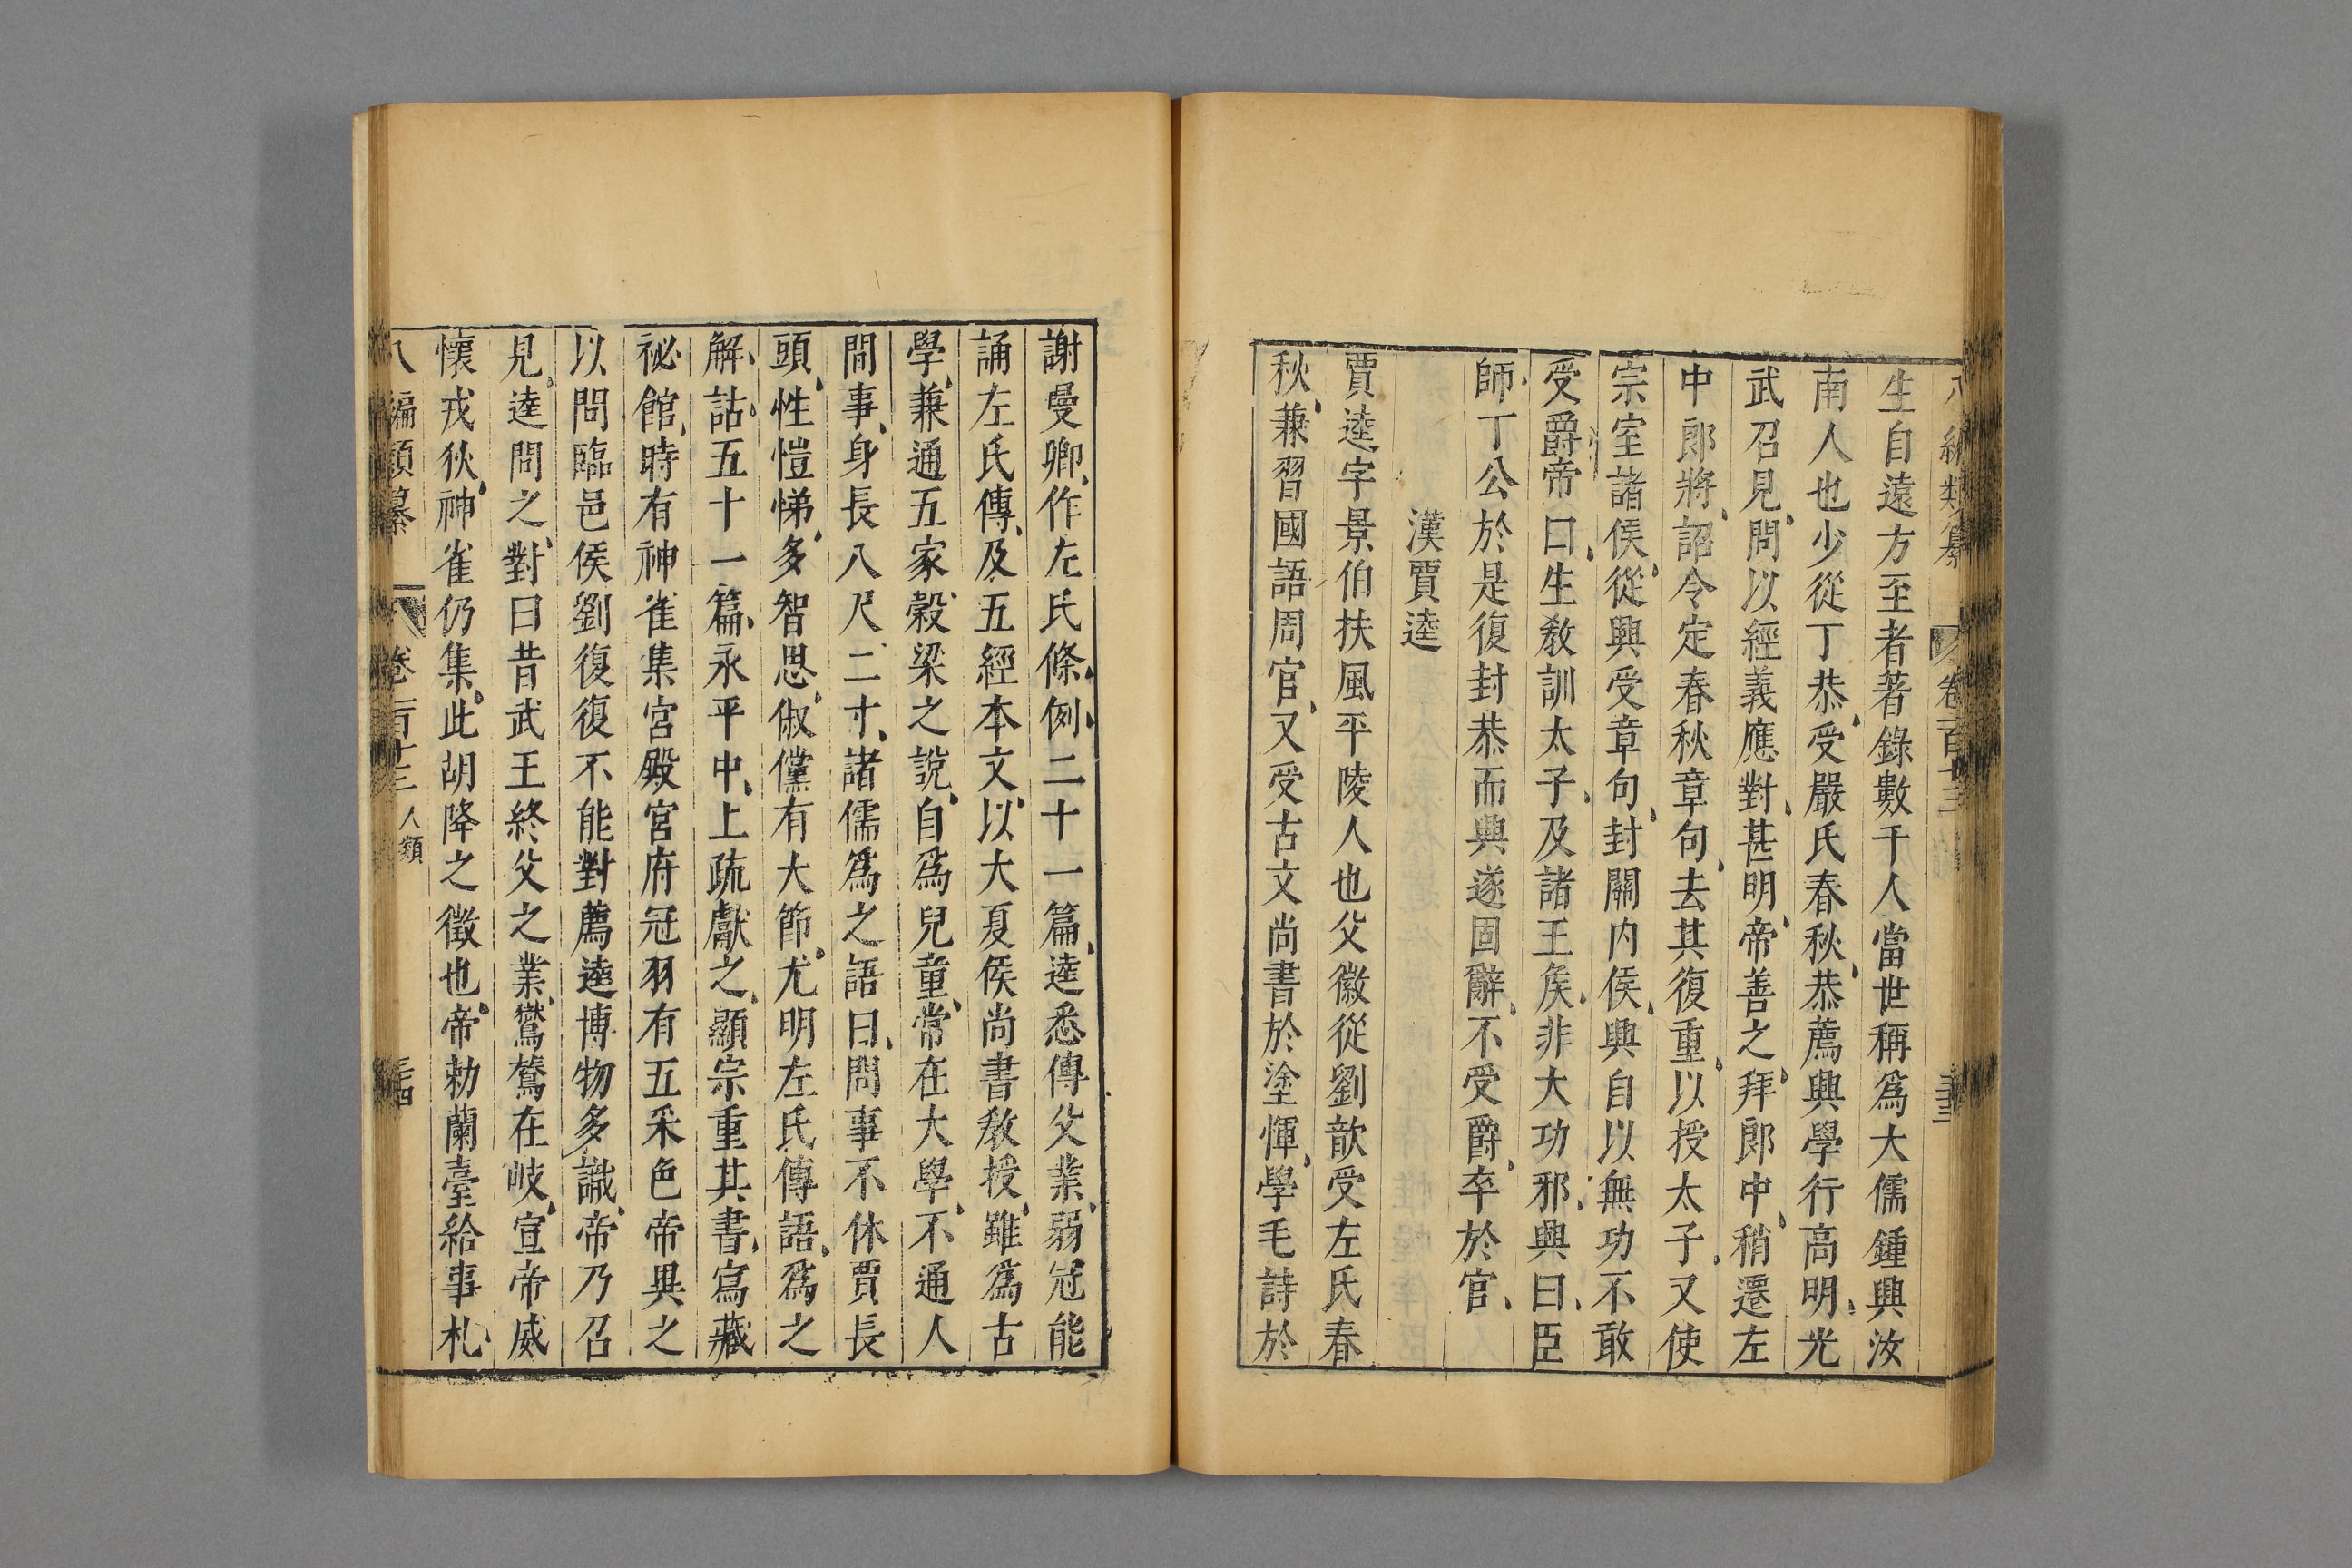 生自遠方至者著錄數千人當世稱爲大儒鍾興汝
南人也少從丁恭受嚴氏春秋恭薦興學行高明光
武召見問以經義應對甚明帝善之拜郎中稍遷左
中郎將詔令定春秋章句去其復重以授太子又使
宗室諸侯從興受章句封關內侯興自以無功不敢
受爵帝曰生教訓太子及諸王侯非大功邪興曰臣
師丁公於是復封恭而興遂固辭不受爵卒於官
漢賈逵
賈逵字景伯扶風平陵人也父徽從劉歆受左氏春
秋兼習國語周官又受古文尚書於塗惲學毛詩於
謝曼卿作左氏條例二十一篇逵悉傳父業弱冠能
誦左氏傳及五經本文以大夏侯尚書教授雖爲古
學兼通五家穀梁之說自爲兒童常在大學不通人
間事身長八尺二寸諸儒爲之語曰問事不休賈長
頭性愷悌多智思俶儻有大節尤明左氏傳語爲之
解詁五十一篇永平中上疏獻之顯宗重其書寫藏
祕館時有神雀集宮殿宮府冠羽有五采色帝異之
以問臨邑侯劉復復不能對薦逵博物多識帝乃召
見逵問之對曰昔武王終父之業鸑鷟在岐宣帝威
懷戎狄神雀仍集此胡降之徵也帝勅蘭臺給事札
八編類纂 卷二百十三 人類 三十四